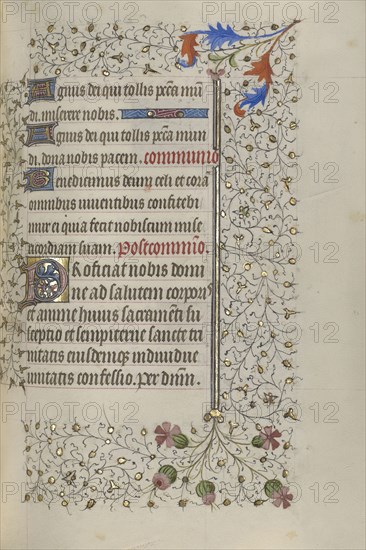 Agnus dei qui tollis pctā mū
di. miserere nobis.
Agnus dei qui tollis pctā mun
di. dona nobis pacem. communio
Benedicimus deum celi et corā
omnibus viventibus confitebi
mur ei quia fecit nobiscum mise
ricordiam suam. Postcommuio.
Proficiat nobis domi
ne ad salutem corpor
et anime huius sacramēti su
sceptio et sempiterne sancte tri
nitatis eiusdemq individue
unitatis confessio. Per dnm.
PHOTO12